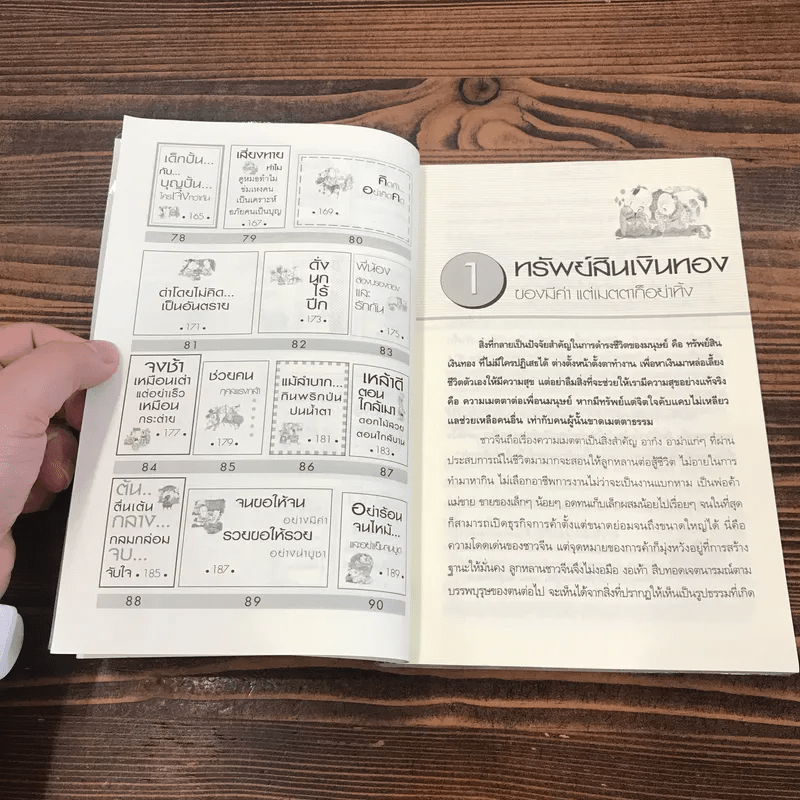 เด็กปั้น...
กับ...
บุญปั้น...
ใครเจ๋งกว่ากัน
• 165 •
78
เสี่ยงทาย
ทำไม
ดูหมอทำไม
ข่มเหงคน
เป็นเคราะห์
อภัยคนเป็นบุญ
• 167 •
79
คิดก็...
อย่าคิดคด
• 169 •
80
ด่าโดยไม่คิด...
เป็นอันตราย
• 171 •
81
ดั่ง
นก
ไร้
ปีก
• 173 •
82
พี่น้อง
ต้องปรองดอง
และ
รักกัน
• 175 •
83
จงช้า
เหมือนเต่า
แต่อย่าเร็ว
เหมือน
กระต่าย
• 177 •
84
ช่วยคน
• 179 •
85
แม้ลำบาก...
กินพริกปัน
ปนน้ำตา
• 181 •
86
เหล้าดี
ตอน
ใกล้เมา
ดอกไม้สวย
ตอนใกล้บาน
• 183 •
87
ต้น..
ตื่นเต้น
กลาง...
กลมกล่อม
จบ...
จับใจ • 185 •
88
จนขอให้จน
อย่างมีค่า
รวยขอให้รวย
อย่างน่าบูชา
• 187 •
89
อย่าร้อน
จนไหม้..
และอย่าเย็นจนบูด
• 189 •
90
1 ทรัพย์สินเงินทอง
ของมีค่า แต่เมตตาก็อย่าทิ้ง
สิ่งที่กลายเป็นปัจจัยสำคัญในการดำรงชีวิตของมนุษย์ คือ ทรัพย์สิน
เงินทอง ที่ไม่มีใครปฏิเสธได้ ต่างตั้งหน้าตั้งตาทำงาน เพื่อหาเงินมาหล่อเลี้ยง
ชีวิตตัวเองให้มีความสุข แต่อย่าลืมสิ่งที่จะช่วยให้เรามีความสุขอย่างแท้จริง
คือ ความเมตตาต่อเพื่อนมนุษย์ หากมีทรัพย์แต่จิตใจคับแคบไม่เหลียว
แลช่วยเหลือคนอื่น เท่ากับคนผู้นั้นขาดเมตตาธรรม
ชาวจีนถือเรื่องความเมตตาเป็นสิ่งสำคัญ อากง อาม่าแก่ๆ ที่ผ่าน
ประสบการณ์ในชีวิตมามากจะสอนให้ลูกหลานต่อสู้ชีวิต ไม่อายในการ
ทำมาหากิน ไม่เลือกอาชีพการงานไม่ว่าจะเป็นงานแบกหาม เป็นพ่อค้า
แม่ขาย ขายของเล็กๆ น้อยๆ อดทนเก็บเล็กผสมน้อยไปเรื่อยๆ จนในที่สุด
ก็สามารถเปิดธุรกิจการค้าตั้งแต่ขนาดย่อมจนถึงขนาดใหญ่ได้ นี่คือ
ความโดดเด่นของชาวจีน แต่จุดหมายของการค้าก็มุ่งหวังอยู่ที่การสร้าง
ฐานะให้มั่นคง ลูกหลานชาวจีนจึงไม่งอมือ งอเท้า สืบทอดเจตนารมณ์ตาม
บรรพบุรุษของตนต่อไป จะเห็นได้จากสิ่งที่ปรากฏให้เห็นเป็นรูปธรรมที่เกิด